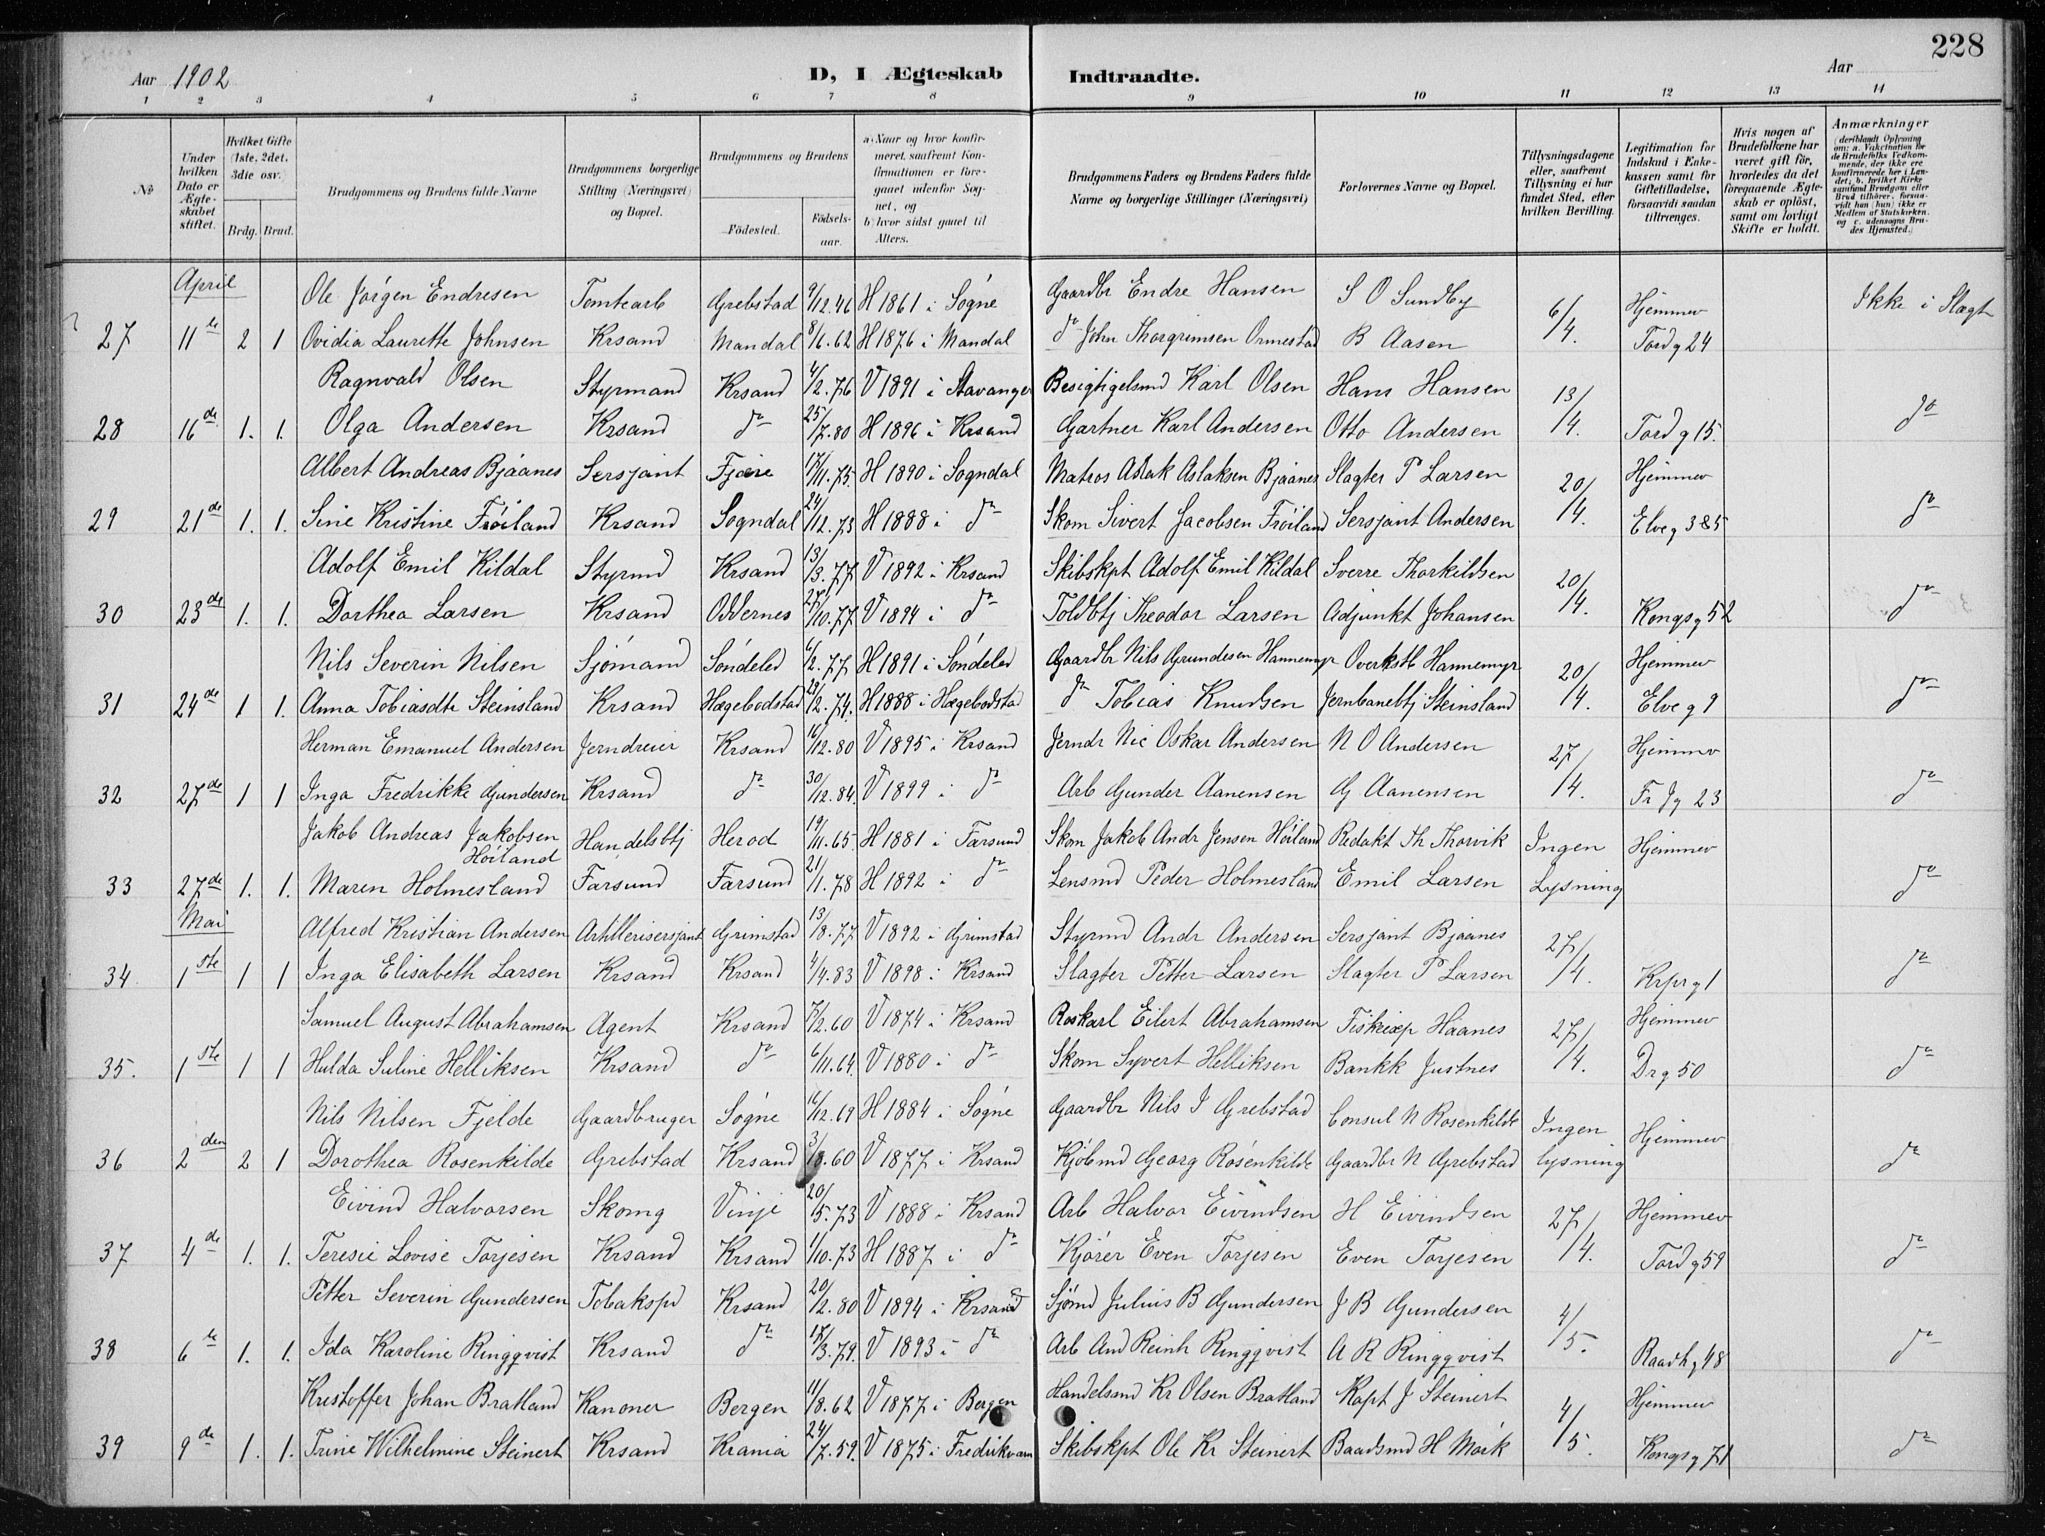 228
Aar 1902 D, I Ægteskab Indtraadte. Aar
1 2 3 4 5 6 7 8 9 10 11 12 13 14
№ Under hvilken Dato er Ægteskabet stiftet. Hvilket Gifte (1ste, 2det, 3die osv.) Brdg. Brud. Brudgommens og Brudens fulde Navne Brudgommens borgerlige Stilling (Næringsvei) og Bopæl. Brudgommens og Brudens Fødested. Fødselsaar. a) Naar og hvor konfirmeret, saafremt Konfirmationen er foregaaet udenfor Sognet, og b) hvor sidst gaaet til Alters. Brudgommens Faders og Brudens Faders fulde Navne og borgerlige Stillinger (Næringsvei) Forlovernes Navne og Bopæl. Tillysningsdagene eller, saafremt Tillysning ei har fundet Sted, efter hvilken Bevilling. Legitimation for Indskud i Enkekassen samt for Giftetilladelse, forsaavidt saadan tiltrænges. Hvis nogen af Brudefolkene har været gift før, hvorledes da det foregaaende Ægteskab er opløst, samt om lovligt Skifte er holdt. Anmærkninger (deriblandt Oplysning om: a. Vakcination for de Brudefolks Vedkommende, der ikke ere konfirmerede her i Landet; b. hvilket Kirkesamfund Brudgom eller Brud tilhører, forsaavidt han (hun) ikke er Medlem af Statskirken, og c. udensogns Brudes Hjemsted.)
April
Ole Jørgen Endresen Tomtearb Grebstad 9/12.46 H 1861 i Søgne Gaardbr Endre Hansen S O Sundby 6/4. Hjemmev Ikke i Slægt
27 11te 2 1 Ovidia Laurette Johnsen Krsand Mandal 8/6.62 H 1876 i Mandal do John Thorgrimsen Ormestad B Aasen Tordg 24
Ragnvald Olsen Styrmand Krsand 4/2.76 V 1891 i Stavanger Besigtigelsmd Karl Olsen Hans Hansen 13/4.
28 16de 1. 1. Olga Andersen Krsand do 25/7.80 H 1896 i Krsand Gartner Karl Andersen Otto Andersen Tordg 15. do
Albert Andreas Bjaanes Sersjant Fjære 17/11.75. H 1890 i Sogndal Matros Aslak Aslaksen Bjaanes Slagter P Larsen 20/4. Hjemmev
29 21de 1. 1. Sine Kristine Frøiland Krsand Sogndal 24/12.73 H 1888 i do Skom Sivert Jacobsen Frøiland Sersjant Andersen Elveg 385 do
Adolf Emil Kildal Styrmd Krsand 13/3.77 V 1892 i Krsand Skibskpt Adolf Emil Kildal Sverre Thorkildsen 20/4.
30 23de 1. 1. Dorthea Larsen Krsand Oddernes 27/10.77 V 1894 i do Toldbtj Theodor Larsen Adjunkt Johansen Kongsg 52 do
Nils Severin Nilsen Sjømand Søndeled 6/2.77 H 1891 i Søndeled Gaardbr Nils Grundesen Hannemyr Overkstb Hannemyr 20/4. Hjemmev
31 24de 1 1. Anna Tobiasdtr Steinsland Krsand Hægebodstad 29/2.74. H 1888 i Hægebodstad do Tobias Knudsen Jernbanebtj Steinsland Elveg 9 do
Herman Emanuel Andersen Jerndreier Krsand 16/12.80 V 1895 i Krsand Jerndr Nic Oskar Andersen N O Andersen 27/4. Hjemmev
32 27de 1 1 Inga Fredrikke Gundersen Krsand do 30/12.84. V 1899 i do Arb Gunder Aanensen G Aanensen Fr Jg 23 do
Jakob Andreas Jakobsen Høiland Handelsbtj Herod 19/11.65 H 1881 i Farsund Skom Jakob Andr Jensen Høiland Redakt Th Thorvik Ingen Hjemmev
33 27de 1. 1. Maren Holmesland Farsund Farsund 21/1.78 H 1892 i do Lensmd Peder Holmesland Emil Larsen Lysning do
Mai
Alfred Kristian Andersen Artillerisersjant Grimstad 13/8.77 V 1892 i Grimstad Styrmd Andr Andersen Sersjant Bjaanes 27/4.
34 1ste 1 1 Inga Elisabeth Larsen Krsand Krsand 4/9.83 V 1898 i Krsand Slagter Petter Larsen Slagter P Larsen Krprg 1 do
Samuel August Abrahamsen Agent Krsand 7/2.60 V 1874 i Krsand Roskarl Eilert Abrahamsen Fiskexp Haanes 27/4. Hjemmev
35. 1ste 1 1 Hulda Suline Helliksen Krsand do 6/11.64. V 1880 i do Skom Syvert Helliksen Bankk Justnes Drg 50 do
Nils Nilsen Fjelde Gaardbruger Søgne 16/12.69 H 1884 i Søgne Gaardbr Nils I Grebstad Consul N Rosenkilde Ingen Hjemmev
36 2den 2 1 Dorothea Rosenkilde Grebstad Krsand 3/8.60 V 1877 i Krsand Kjøbmd Georg Rosenkilde Gaardbr N Grebstad lysning do
Eivind Halvorsen Skomg Vinje 20/5.73 V 1888 i Krsand Arb Halvor Eivindsen H Eivindsen 27/4. Hjemmev
37 4de 1. 1. Teresie Lovise Torjesen Krsand Krsand 1/10.73 H 1887 i do Kjører Even Torjesen Even Torjesen Tordg 59 do
Petter Severin Gundersen Tobakspd Krsand 20/2.80 V 1894 i Krsand Sjømd Julius B Gundersen J B Gundersen 4/5.
38 6te 1. 1. Ida Karoline Ringqvist Krsand do 17/3.79. V 1893 i do Arb And Reinh Ringqvist A R Ringqvist Raadhg 48 do
Kristoffer Johan Bratland Kanoner Bergen 11/8.62 V 1877 i Bergen Handelsmd Kr Olsen Bratland Kapt J Steinert 4/5. Hjemmev
39 9de 1. 1. Trine Wilhelmine Steinert Krsand Krania 24/7.59. V 1875 i Fredriksvarn Skibskpt Ole Kr Steinert Baadsmd H Mørk Kongsg 71 do